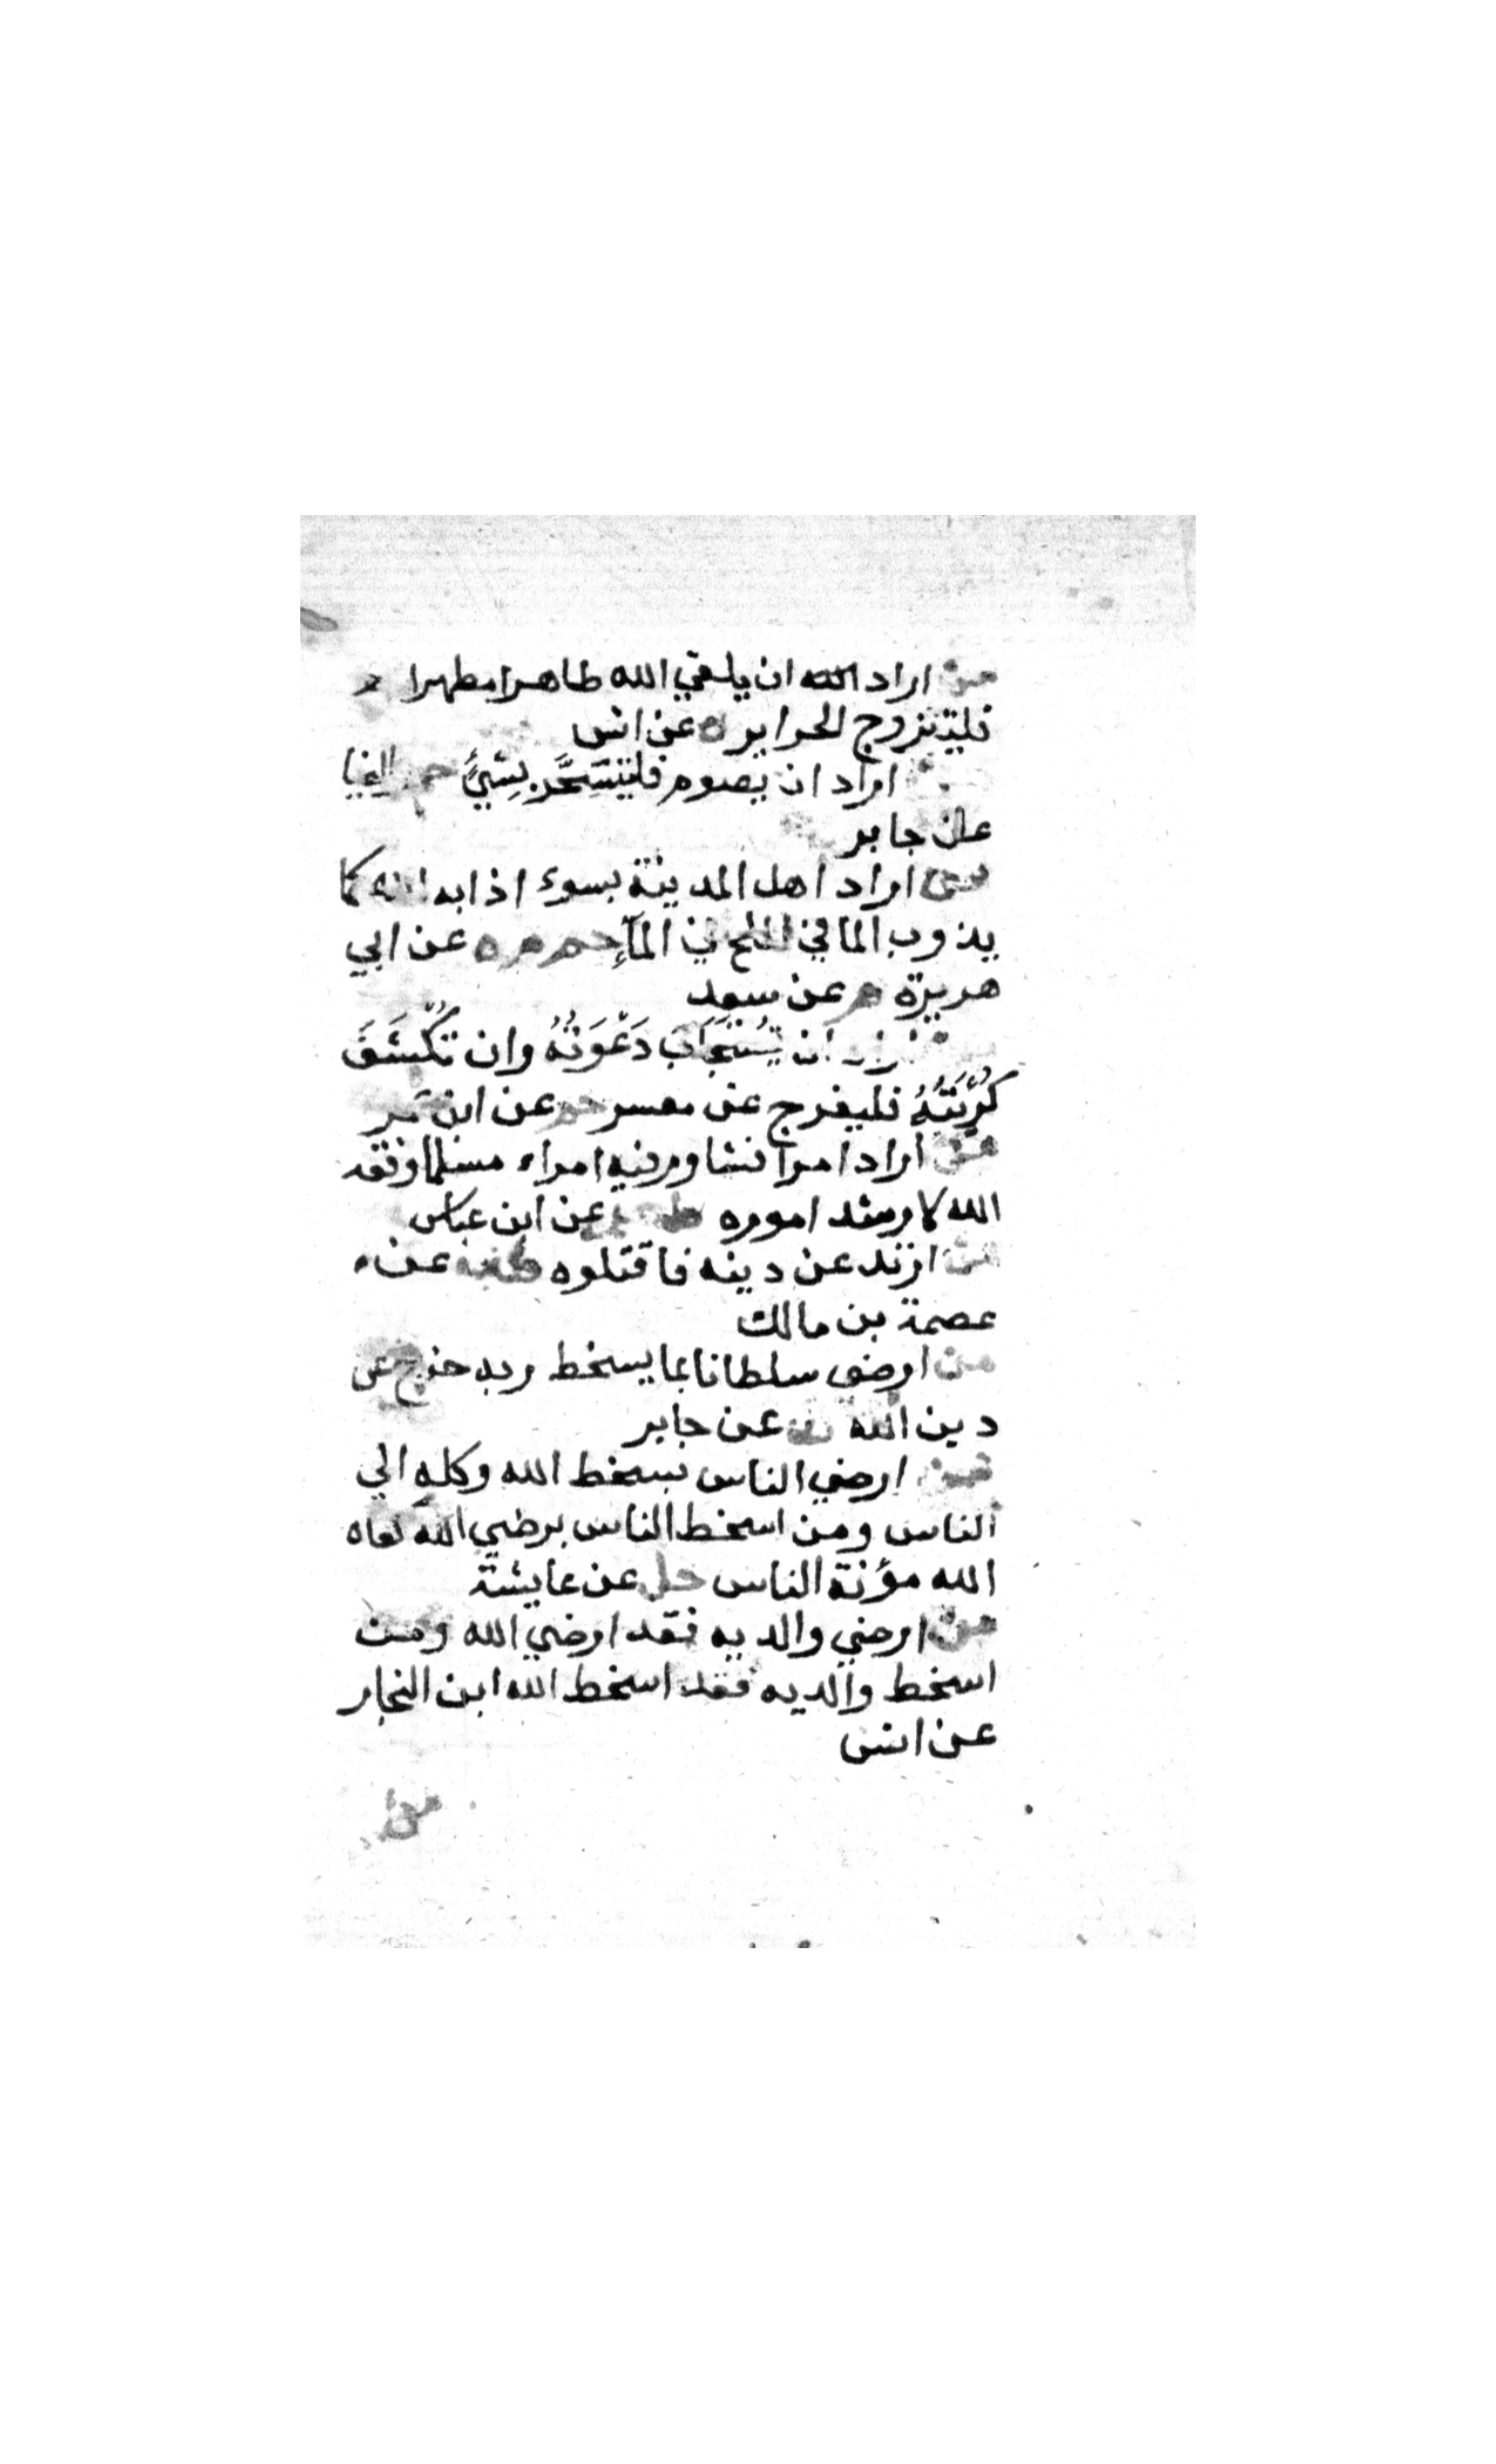 من اراد الله ان يلقي الله طاهرا مطهرا
فليتزوج الحراير ه عن انس
اراد ان يصوم فليتسَحَّر بِشَيْءٍ حم الضيا
عن جابر
من اراد اهل المدينة بسوء اذابه الله كما
يذوب الما في الملح في المآءِ حم م ه عن ابي
هريرة م عن سعد
ان تُسْتَجَابَ دَعْوَتُهُ وان تُكْشَفَ
كُرْبَتُهُ فليفرج عن معسر حم عن ابن عمر
من اراد امرا فشاور فيه امراء مسلما وفقه
الله لارشد اموره طس عن ابن عباس
من ارتد عن دينه فاقتلوه طب عن
عصمة بن مالك
من ارضى سلطانا بما يسخط ربه خرج من
دين الله ك عن جابر
من ارضي الناس بسخط الله وكله الي
الناس ومن اسخط الناس برضي الله كفاه
الله مؤنة الناس حل عن عايشة
من ارضي والديه فقد ارضي الله ومن
اسخط والديه فقد اسخط الله ابن النجار
عن انس
من